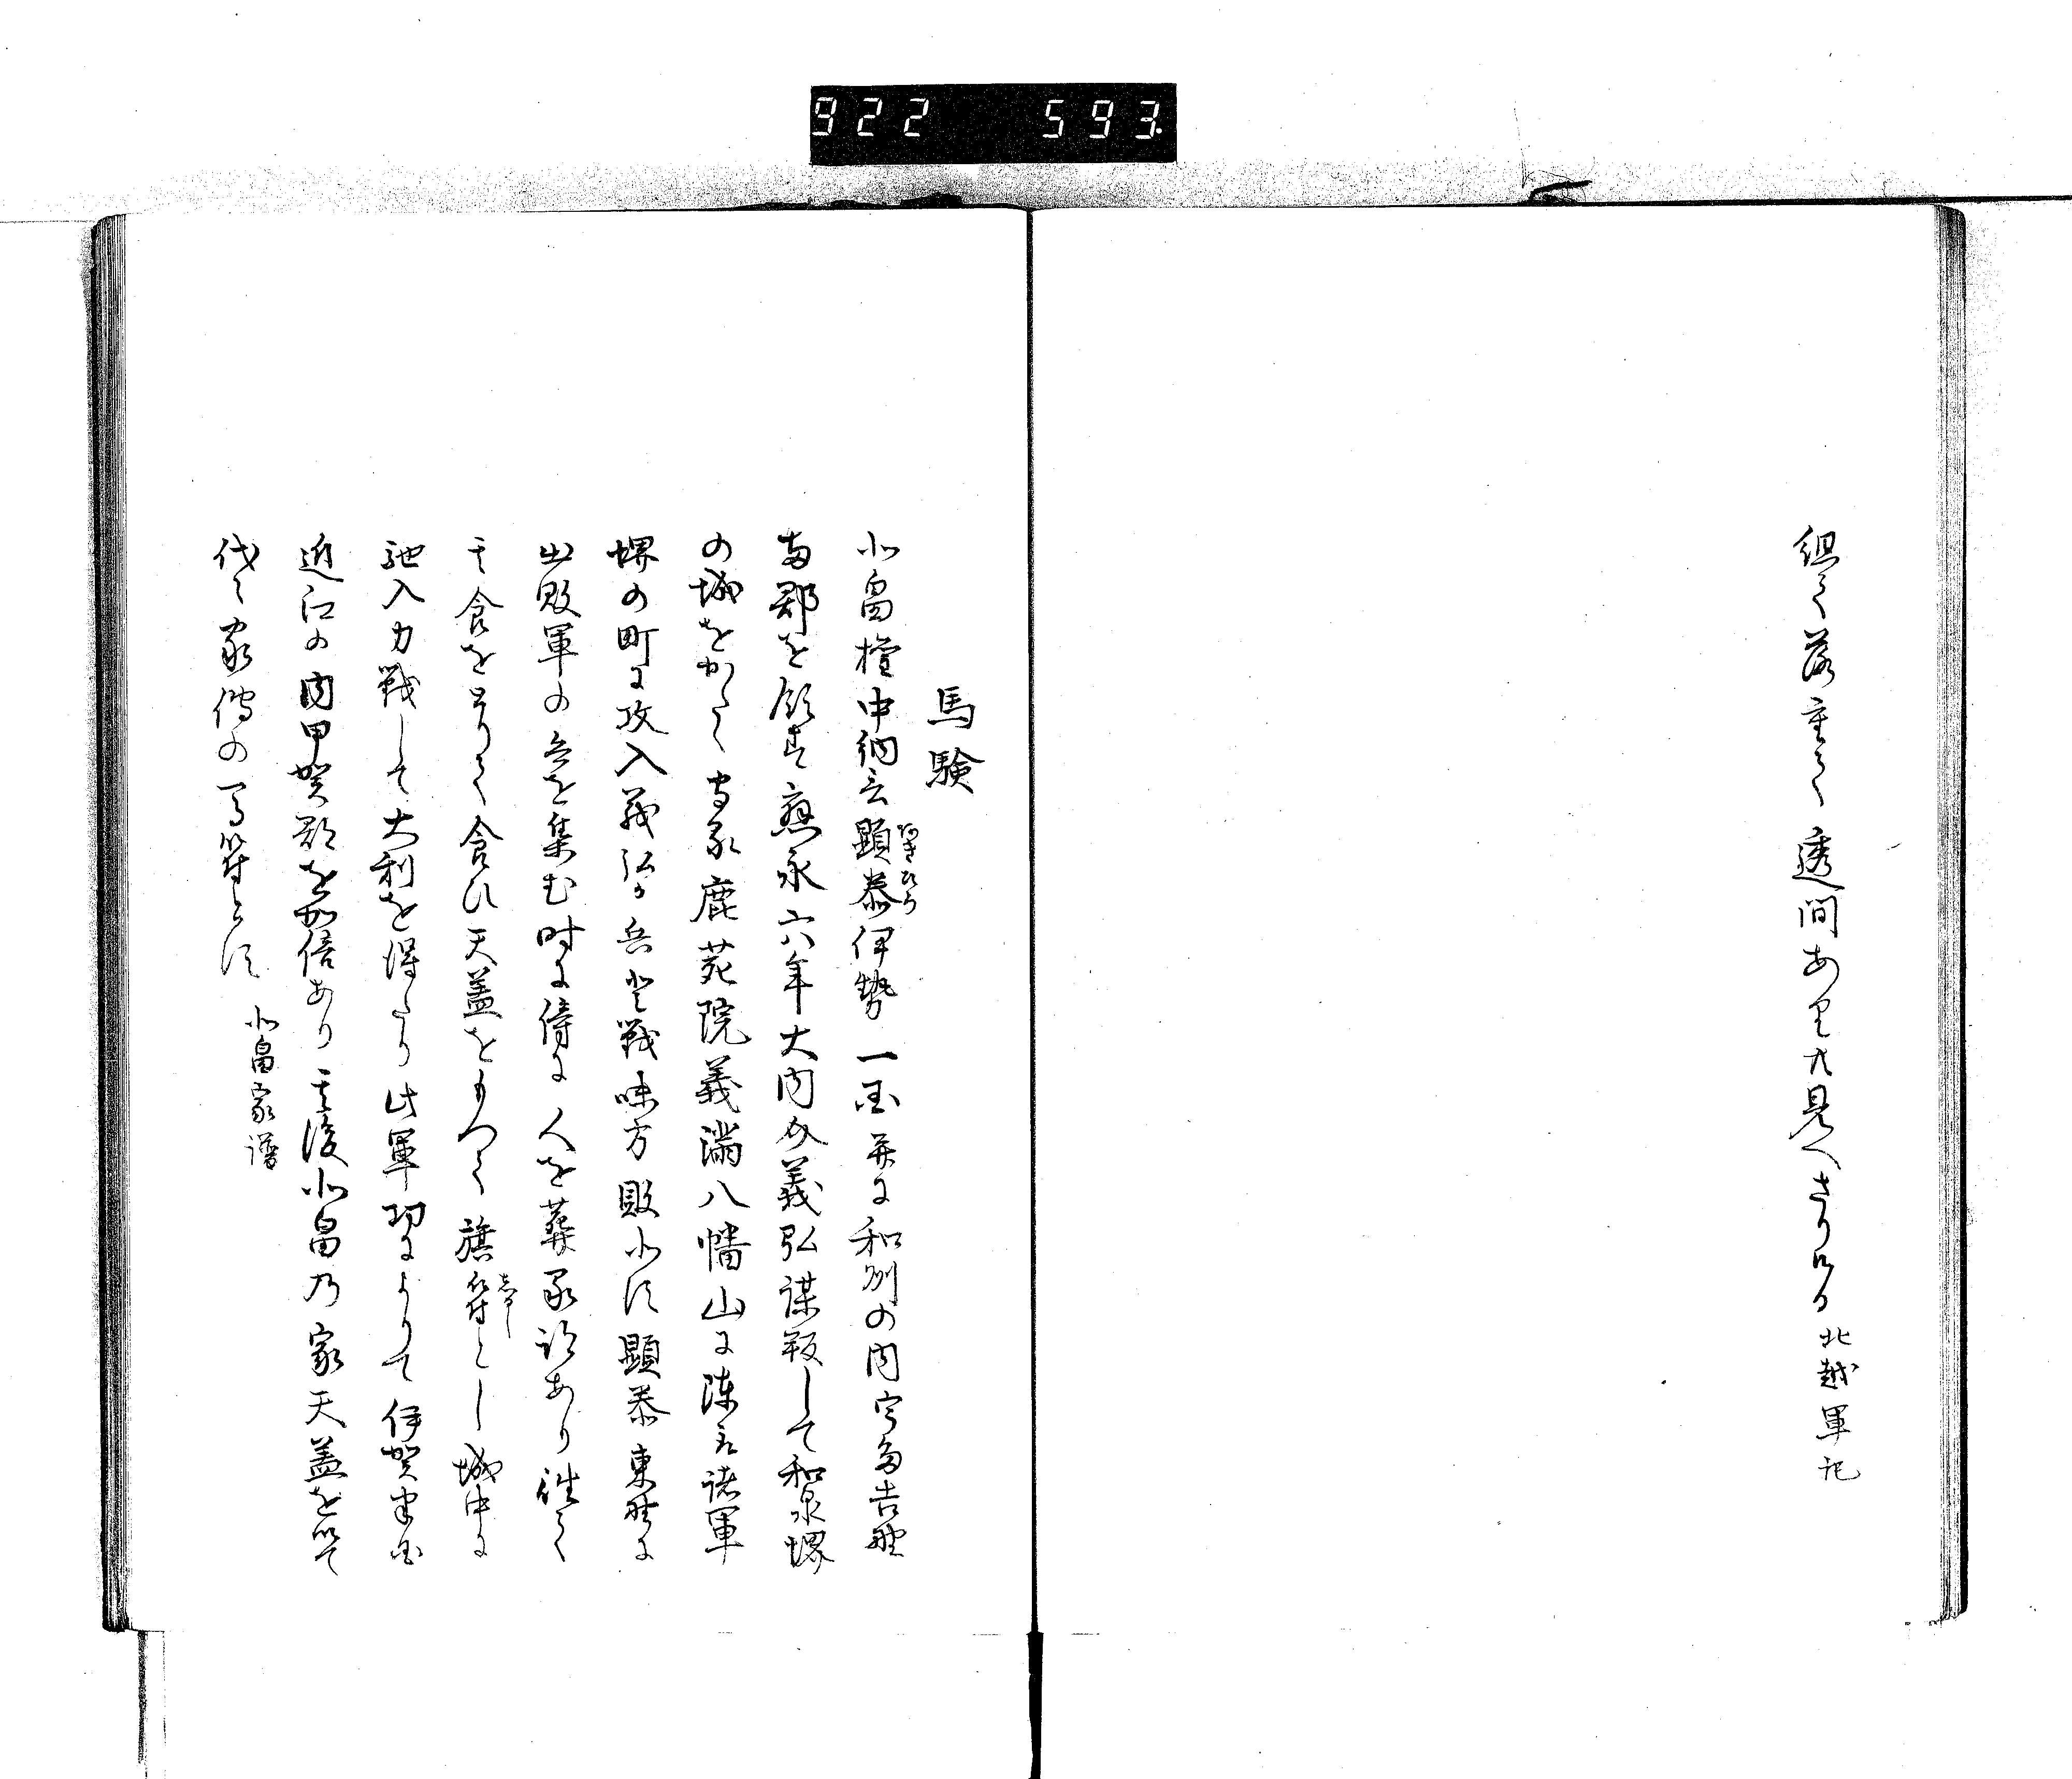 922 593
組て落重て透間ありとハ見へさりける 北越軍記
馬験
北畠権中納言顕泰伊勢一国并に和州の内宇多吉野
あきやす
両郡を領す應永六年大内介義弘謀叛して和泉堺
の城をかまへ立て守る鹿苑院義満八幡山に陣を取諸軍
堺の町に攻入義弘か兵と戦味方敗北す顕泰東野に
出敗軍の兵を集む時に傍に人を葬る所あり往て
其食をとりて食ひ天蓋をもつて旗符とし城中に
しるし
馳入力戦して大利を得たり此軍功によりて伊賀半国
近江の内甲賀郡を加倍あり其後北畠乃家天蓋を以て
代々家傳の馬符とす 北畠家譜